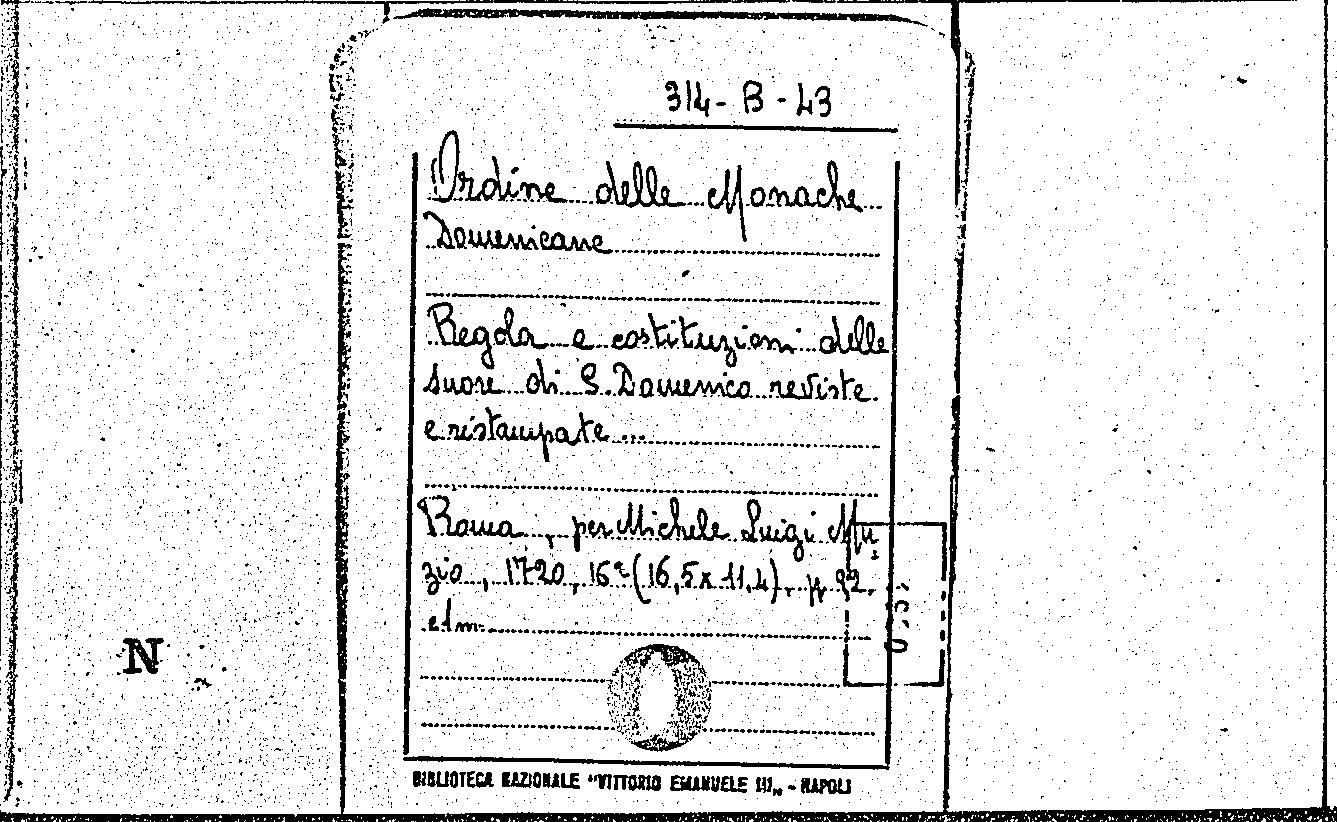 314-B-43
Ordine delle Monache
Domenicane
Regola e costituzioni delle
suore di S. Domenico reviste
e ristampate...
Roma, per Michele Luigi Mu-
zio, 1720, 16º (16,5x11,4), p. 92.
N
BIBLIOTECA NAZIONALE "VITTORIO EMANUELE III„ - NAPOLI